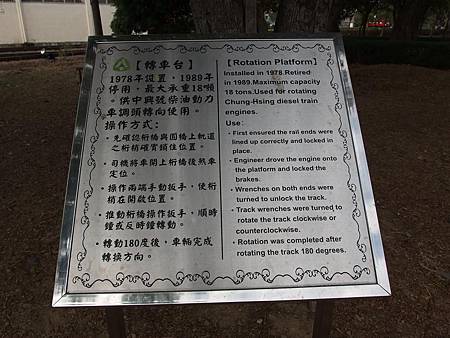 【轉車台】
1978年設置，1989年
停用，最大承重18噸
。供中興號柴油動力
車調頭轉向使用。
操作方式：
·先確認桁橋與圓橋上軌道
之桁梢確實鎖住位置。
·司機將車開上桁橋後煞車
定位。
·操作兩端手動扳手，使桁
梢在開啟位置。
·推動桁橋操作扳手，順時
鐘或反時鐘轉動。
·轉動180度後，車輛完成
轉換方向。
【Rotation Platform】
Installed in 1978.Retired
in 1989.Maximum capacity
18 tons.Used for rotating
Chung-Hsing diesel train
engines.
Use:
·First ensured the rail ends were
lined up correctly and locked in
place.
·Engineer drove the engine onto
the platform and locked the
brakes.
·Wrenches on both ends were
turned to unlock the track.
·Track wrenches were turned to
rotate the track clockwise or
counterclockwise.
·Rotation was completed after
rotating the track 180 degrees.